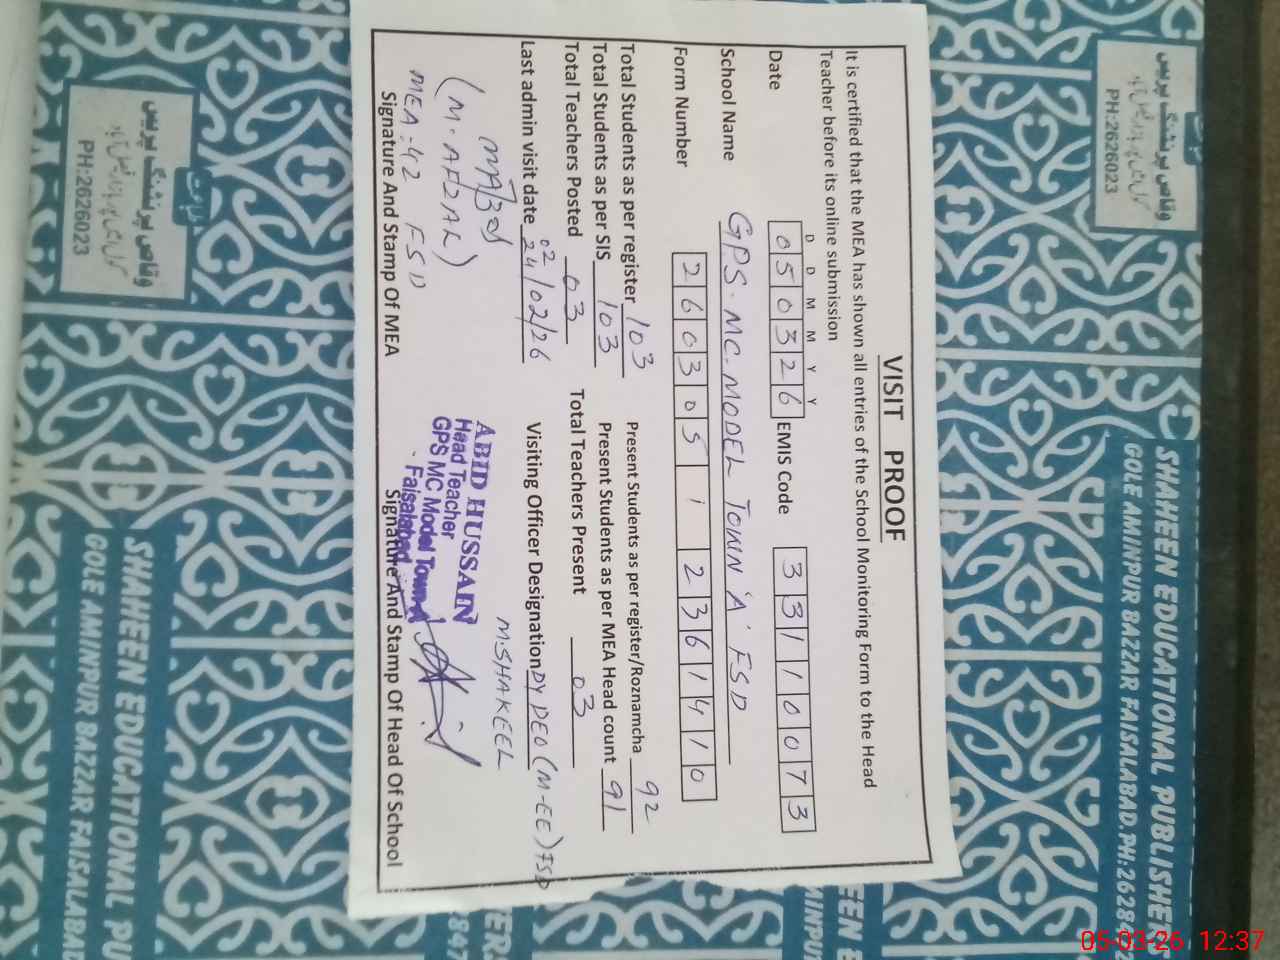 VISIT PROOF
It is certified that the MEA has shown all entries of the School Monitoring Form to the Head
Teacher before its online submission
D D M M Y Y
Date 050326 EMIS Code 33110073
School Name GPS. MC. MODEL TOWN 'A' FSD
Form Number 260305 1 2361410
Total Students as per register 103 Present Students as per register/Roznamcha 92
Total Students as per SIS 103 Present Students as per MEA Head count 91
Total Teachers Posted 03 Total Teachers Present 03
Last admin visit date 24/02/26 Visiting Officer Designation DY DEO (M-EE) FSD
02
M.SHAKEEL
(M. AFZAL)
MEA-42 FSD
Signature And Stamp Of MEA
ABID HUSSAIN
Head Teacher
GPS MC Model Town A
Faisalabad
Signature And Stamp Of Head Of School
وقاص پرنٹنگ پریس
PH:2626023
وقاص پرنٹنگ پریس
PH:2626023
SHAHEEN EDUCATIONAL PUBLISHERS
GOLE AMINPUR BAZZAR FAISALABAD.PH:26284
SHAHEEN EDUCATIONAL PU
GOLE AMINPUR BAZZAR FAISALABAD
05-03-26 12:37